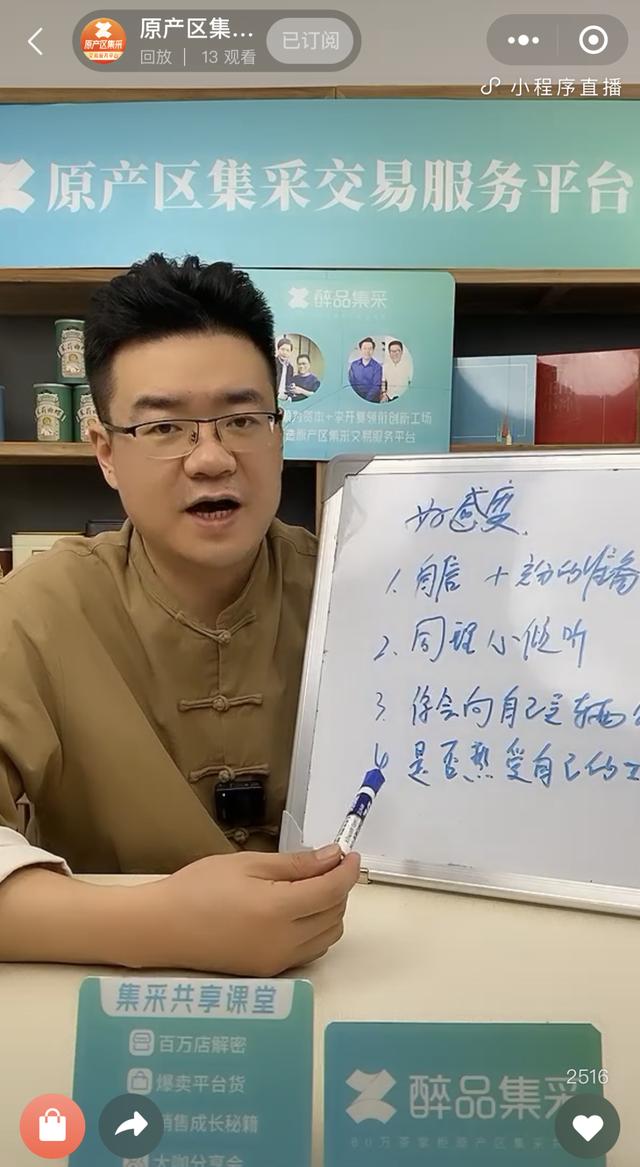 原产区集...
已订阅
回放 | 13 观看
小程序直播
原产区集采交易服务平台
醉品集采
字开复领衔创新工场
造原产区集采交易服务平台
好感度
1. 自信 + 充分的准备
2. 同理心倾听
3. 你会向自己买东西
4 是否热爱自己的工
集采共享课堂
百万店解密
爆卖平台货
销售成长秘籍
大咖分享会
2516
醉品集采
80万茶掌柜原产区集采